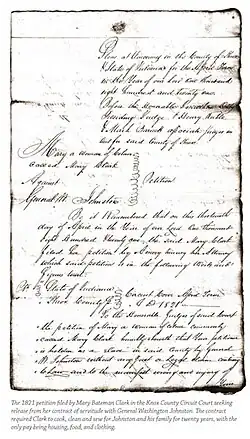 Pleas at Vincennes in the County of Knox
& State of Indiana for the April Term
in the Year of our Lord One thousand
eight hundred and twenty one.
Before the Honorable
President Judge & Henry Ruble
& Mark Barnett associate Judges in
and for said County of Knox
Mary a woman of Colour
called Mary Clark
Against Petition
General W. Johnston
Be it Remembered that on this thirteenth
day of April in the Year of our Lord One thousand
eight Hundred & twenty one, the said Mary Clark
filed her petition by Amory Kinney her Attorney
which said petition is in the following words and
figures to wit:
State of Indiana
Knox County Circuit Court April Term
A.D. 1821
To the Honorable Judges of said Court
the petition of Mary a woman of colour commonly
called Mary Clark humbly sheweth that Your petitioner
is holden as a slave in said County by General
W. Johnston without any just or legal claim contrary
to Law, and to the manifest wrong and injury of
The 1821 petition filed by Mary Bateman Clark in the Knox County Circuit Court seeking
release from her contract of servitude with General Washington Johnston. The contract
required Clark to cook, clean and sew for Johnston and his family for twenty years, with the
only pay being housing, food, and clothing.